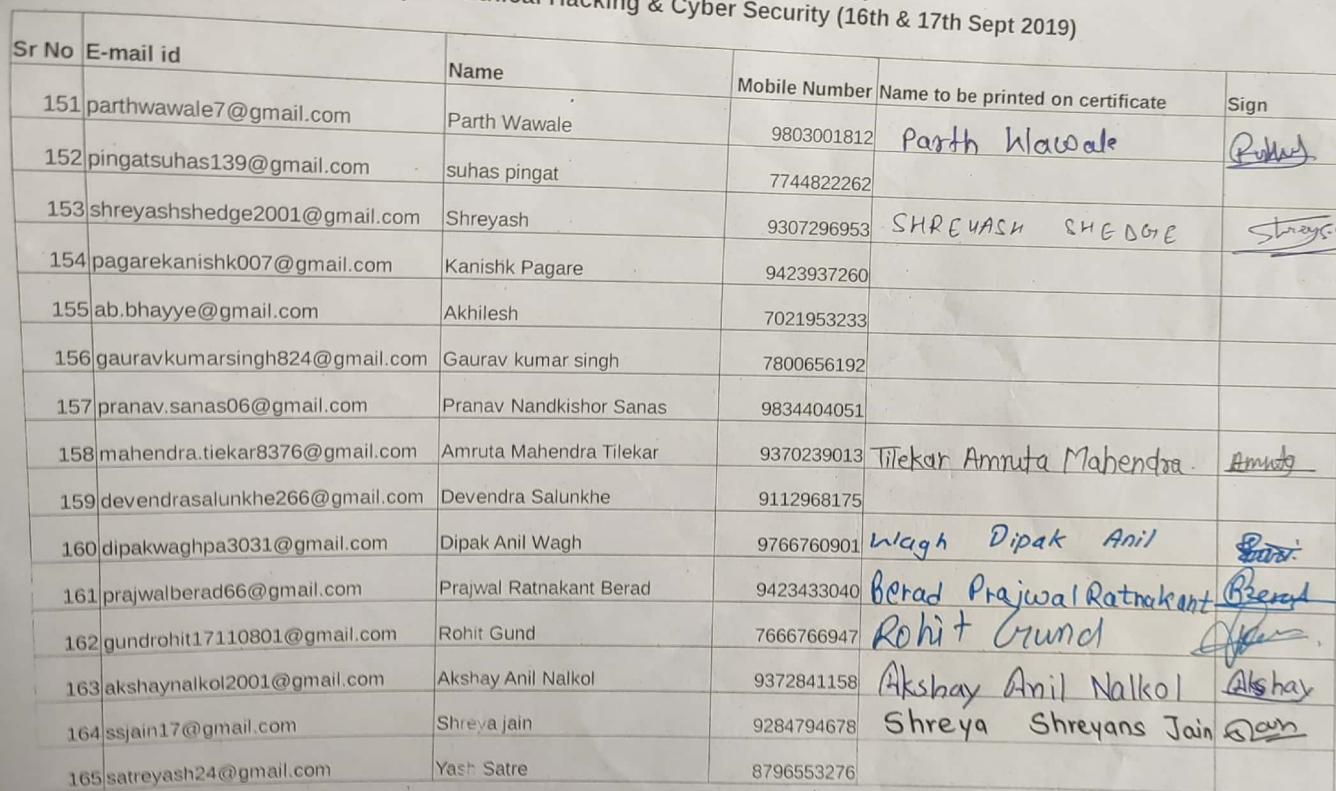 Hacking & Cyber Security (16th & 17th Sept 2019)
Sr No E-mail id Name Mobile Number Name to be printed on certificate Sign
151 parthwawale7@gmail.com Parth Wawale 9803001812 Parth Wawale
152 pingatsuhas139@gmail.com suhas pingat 7744822262
153 shreyashshedge2001@gmail.com Shreyash 9307296953 SHREYASH SHEDGE Shreys
154 pagarekanishk007@gmail.com Kanishk Pagare 9423937260
155 ab.bhayye@gmail.com Akhilesh 7021953233
156 gauravkumarsingh824@gmail.com Gaurav kumar singh 7800656192
157 pranav.sanas06@gmail.com Pranav Nandkishor Sanas 9834404051
158 mahendra.tiekar8376@gmail.com Amruta Mahendra Tilekar 9370239013 Tilekar Amruta Mahendra. Amruta
159 devendrasalunkhe266@gmail.com Devendra Salunkhe 9112968175
160 dipakwaghpa3031@gmail.com Dipak Anil Wagh 9766760901 Wagh Dipak Anil
161 prajwalberad66@gmail.com Prajwal Ratnakant Berad 9423433040 Berad Prajwal Ratnakant
162 gundrohit17110801@gmail.com Rohit Gund 7666766947 Rohit Gund
163 akshaynalkol2001@gmail.com Akshay Anil Nalkol 9372841158 Akshay Anil Nalkol Akshay
164 ssjain17@gmail.com Shreya jain 9284794678 Shreya Shreyans Jain
165 satreyash24@gmail.com Yash Satre 8796553276